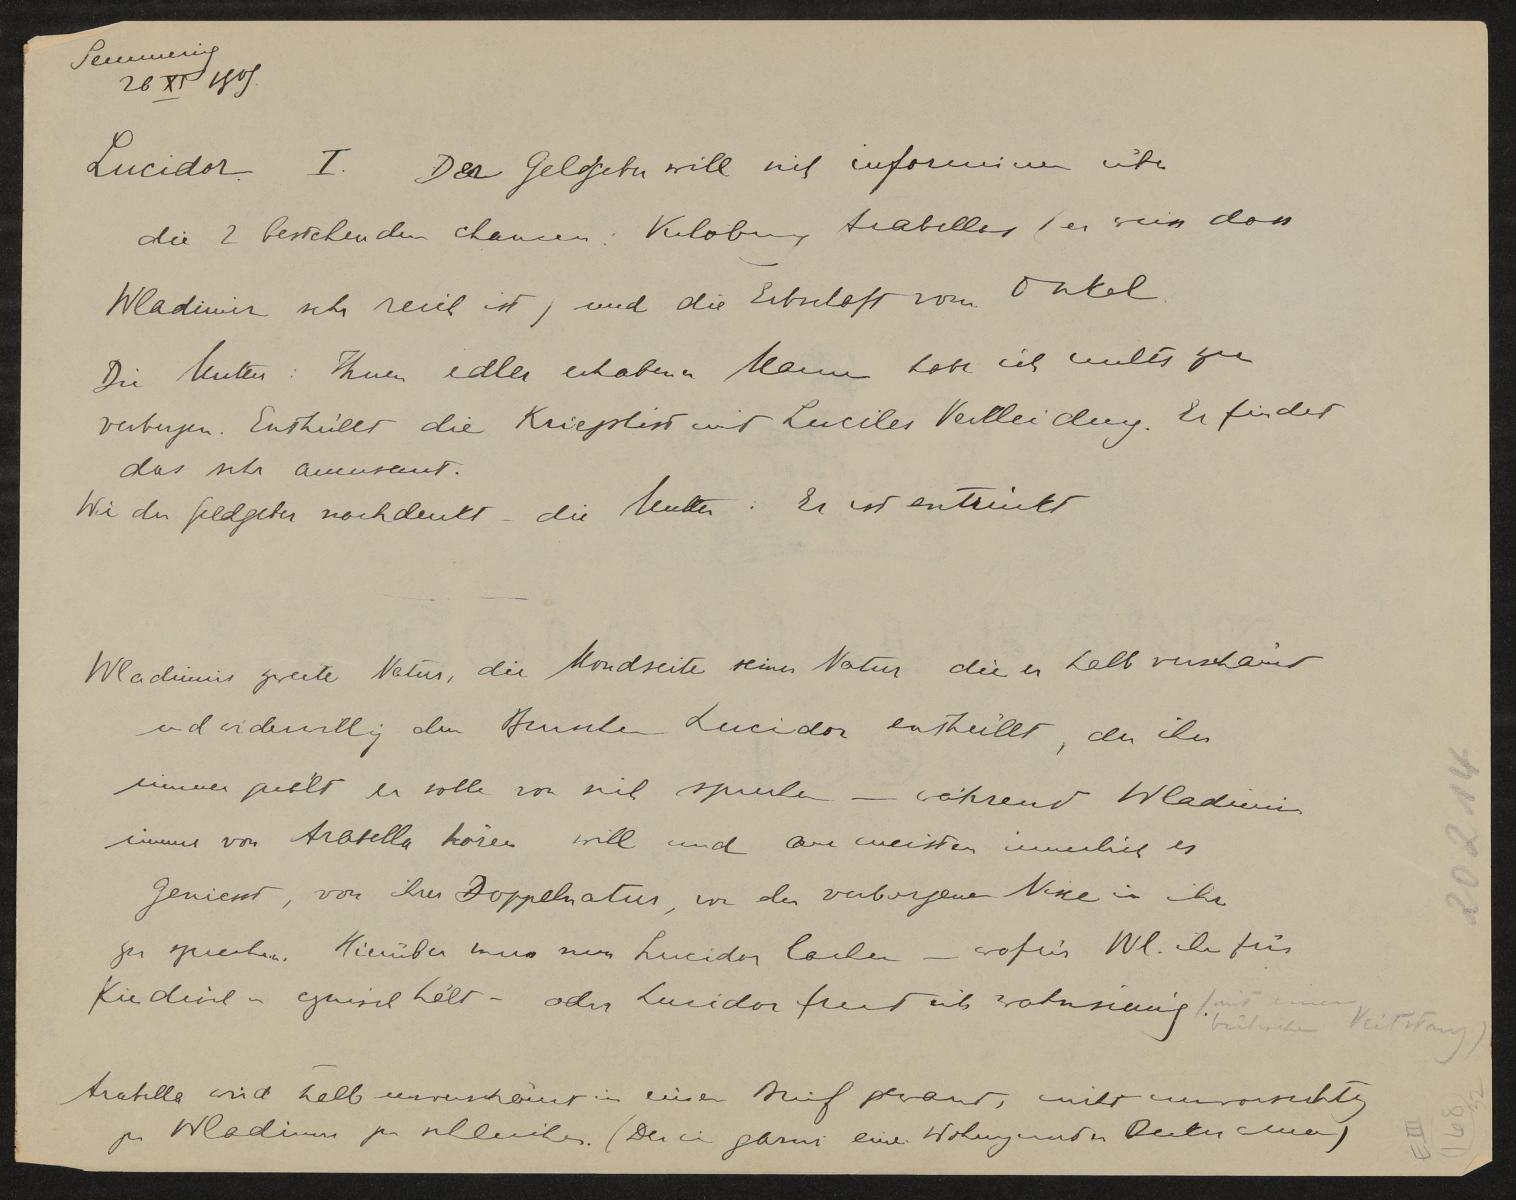 Semmering
26 XI 1909.
Lucidor. I. Der Geldgeber will sich informieren über
die 2 bestehenden Chancen: Verlobung Arabellas (er weiss dass
Wladimir sehr reich ist) und die Erbschaft vom Onkel.
Die Mutter: Ihnen edler erhabener Mann habe ich nichts zu
verbergen. Enthüllt die Kriegslist mit Luciles Verkleidung. Er findet
das sehr amusant.
Wie der Geldgeber nachdenkt – die Mutter: Er ist entzückt
Wladimirs zweite Natur, die Mondseite seiner Natur die er halb verschämt
und widerwillig dem Burschen Lucidor enthüllt, der ihn
immer quält er solle von sich sprechen — während Wladimir
immer von Arabella hören will und am meisten innerlich es
geniesst, von ihrer Doppelnatur, von der verborgenen Nixe in ihr
zu sprechen. Hierüber muss nun Lucidor lachen — wofür Wl. ihn für
kindisch u cynisch hält – oder Lucidor freut sich wahnsinnig. (mit einem
Veitstanz)
Arabella wird halb unverschämt in einem Brief gewarnt, nicht unvorsichtig
zu Wladimir zu schleichen. (Der in garni eine Wohnung
20214
E III
168
12